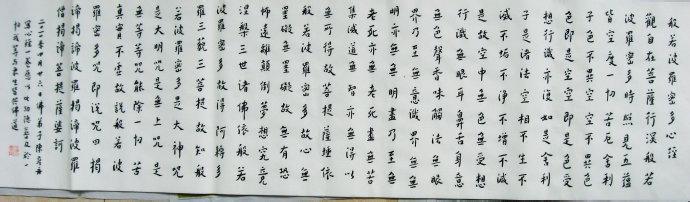 般若波羅密多心經
觀自在菩薩行深般若
波羅密多時照見五蘊
皆空度一切苦厄舍利
子色不異空空不異色
色即是空空即是色受
想行識亦復如是舍利
子是諸法空相不生不
滅不垢不淨不增不減
是故空中無色無受想
行識無眼耳鼻舌身意
無色聲香味觸法無眼
界乃至無意識界無無
明亦無無明盡乃至無
老死亦無老死盡無苦
集滅道無智亦無得以
無所得故菩提薩埵依
般若波羅密多故心無
罣礙無罣礙故無有恐
怖遠離顛倒夢想究竟
涅槃三世諸佛依般若
波羅密多故得阿耨多
羅三藐三菩提故知般
若波羅密多是大神咒
是大明咒是無上咒是
無等等咒能除一切苦
真實不虛故說般若波
羅密多咒即說咒曰揭
諦揭諦波羅揭諦波羅
僧揭諦菩提薩婆訶
年四月廿六日佛弟子陳
寫心經一卷願以此功德普及於一
切我等與眾生皆共佛道